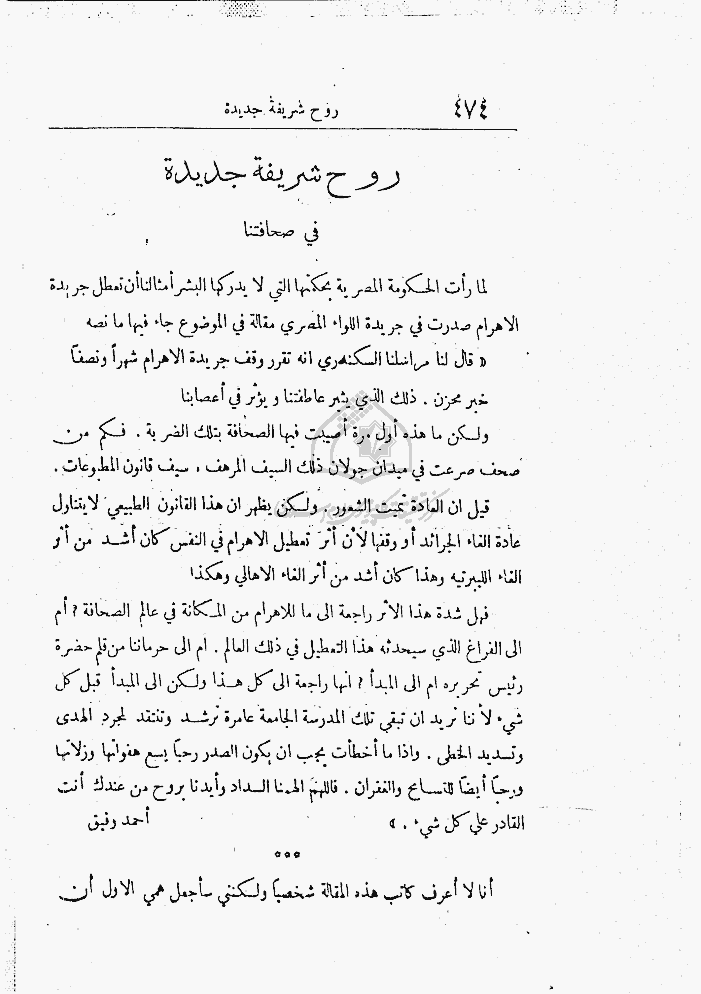 ٤٧٤ روح شريفة جديدة
روح شريفة جديدة
في صحافتنا
لما رأت الحكومة المصرية بحكمتها التي لا يدركها البشر أمثالنا أن تعطل جريدة
الاهرام صدرت في جريدة اللواء المصري مقالة في الموضوع جاء فيها ما نصه
« قال لنا مراسلنا السكندري انه تقرر وقف جريدة الاهرام شهراً ونصفاً
خبر محزن . ذلك الذي يثير عاطفتنا ويؤثر في أعصابنا
ولكن ما هذه أول مرة أصيبت فيها الصحافة بتلك الضربة . فكم من
صحف صرعت في ميدان جولان ذلك السيف المرهف ، سيف قانون المطبوعات .
قيل ان العادة تميت الشعور . ولكن يظهر ان هذا القانون الطبيعي لا يتناول
عادة الغاء الجرائد أو وقفها لأن أثر تعطيل الاهرام في النفس كان أشد من أثر
الغاء الليبرتيه وهذا كان أشد من أثر الغاء الاهالي وهكذا
فهل شدة هذا الاثر راجعة الى ما للاهرام من المكانة في عالم الصحافة ? أم
الى الفراغ الذي سيحدثه هذا التعطيل في ذلك العالم . ام الى حرماننا من قلم حضرة
رئيس تحريره ام الى المبدأ ? انها راجعة الى كل هذا ولكن الى المبدأ قبل كل
شيء لأننا نريد ان تبقى تلك المدرسة الجامعة عامرة ترشد وتنتقد لمجرد الهدى
وتسديد الخطى . واذا ما أخطأت يجب ان يكون الصدر رحباً يسع هفواتها وزلاتها
ورحباً أيضاً للتسامح والغفران . فاللهم الهمنا السداد وأيدنا بروح من عندك أنت
القادر على كل شيء . » أحمد وفيق
***
أنا لا أعرف كاتب هذه المقالة شخصياً ولكنني سأجعل همي الاول أن